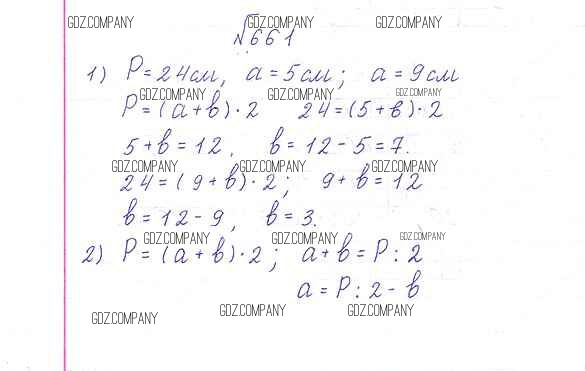 GDZ.COMPANY GDZ.COMPANY GDZ.COMPANY
№661
1) P=24см, a=5см; a=9см
GDZ.COMPANY GDZ.COMPANY GDZ.COMPANY
P=(a+b)·2 24=(5+b)·2
5+b=12, b=12-5=7.
GDZ.COMPANY GDZ.COMPANY GDZ.COMPANY
24=(9+b)·2; 9+b=12
b=12-9, b=3.
GDZ.COMPANY GDZ.COMPANY GDZ.COMPANY
2) P=(a+b)·2; a+b=P:2
a=P:2-b
GDZ.COMPANY GDZ.COMPANY GDZ.COMPANY